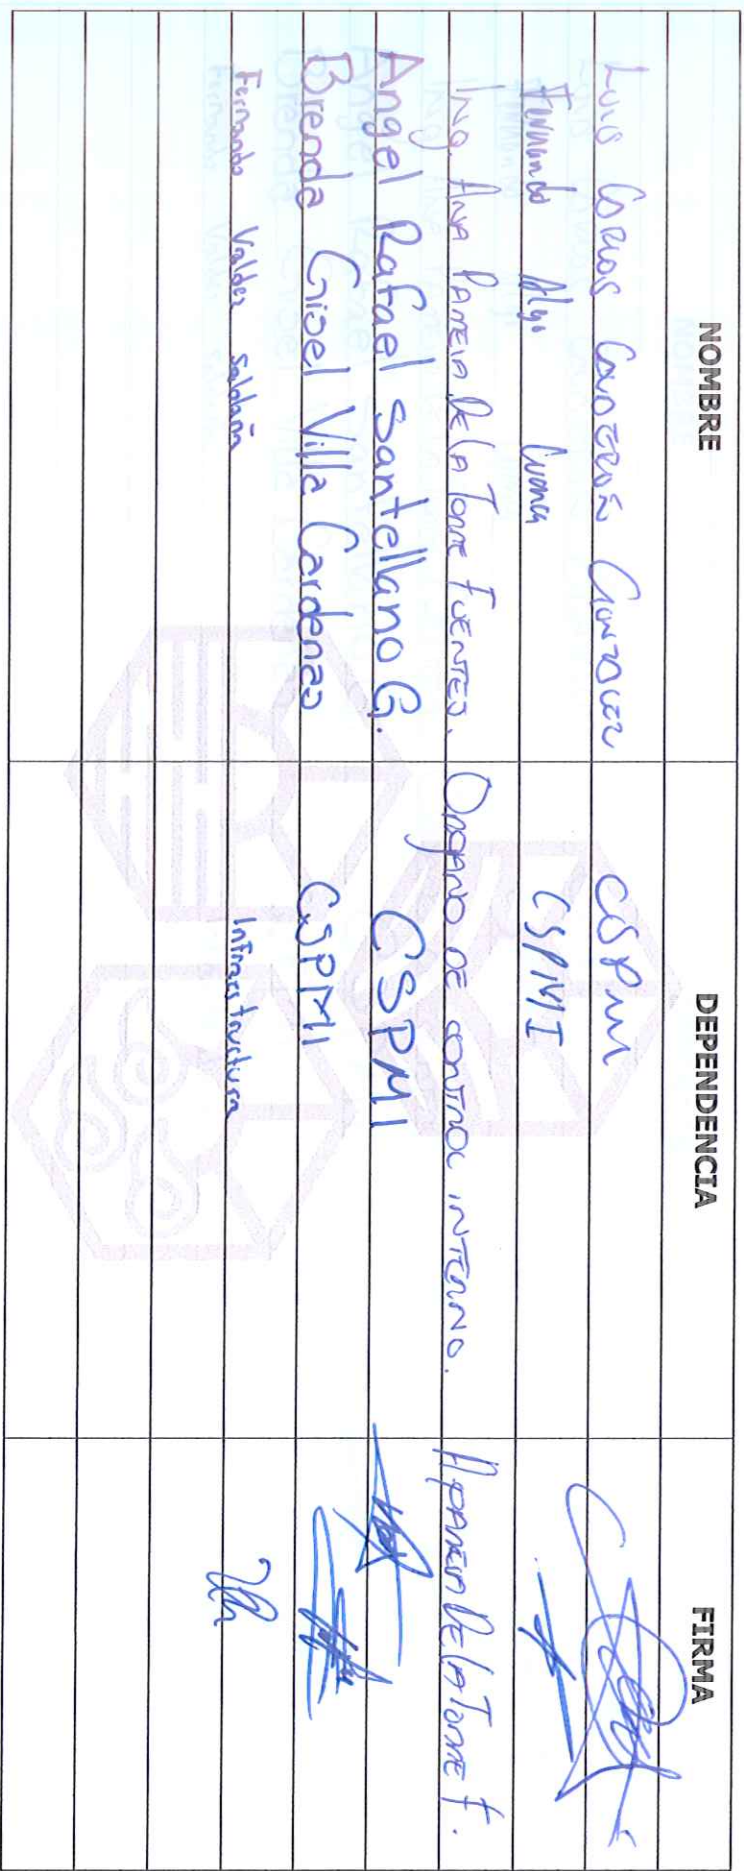 NOMBRE DEPENDENCIA FIRMA
Luis Carlos Calderón González CSPMI
Fernando Alya Cuenca CSPMI
Ing. Ana Pamela De la Torre Fuentes. Organo de control interno. A pamela De la Torre F.
Angel Rafael Santellano G. CSPMI
Brenda Gisel Villa Cardenas CSPMI
Fernando Valdez Saldaña Infraestructura